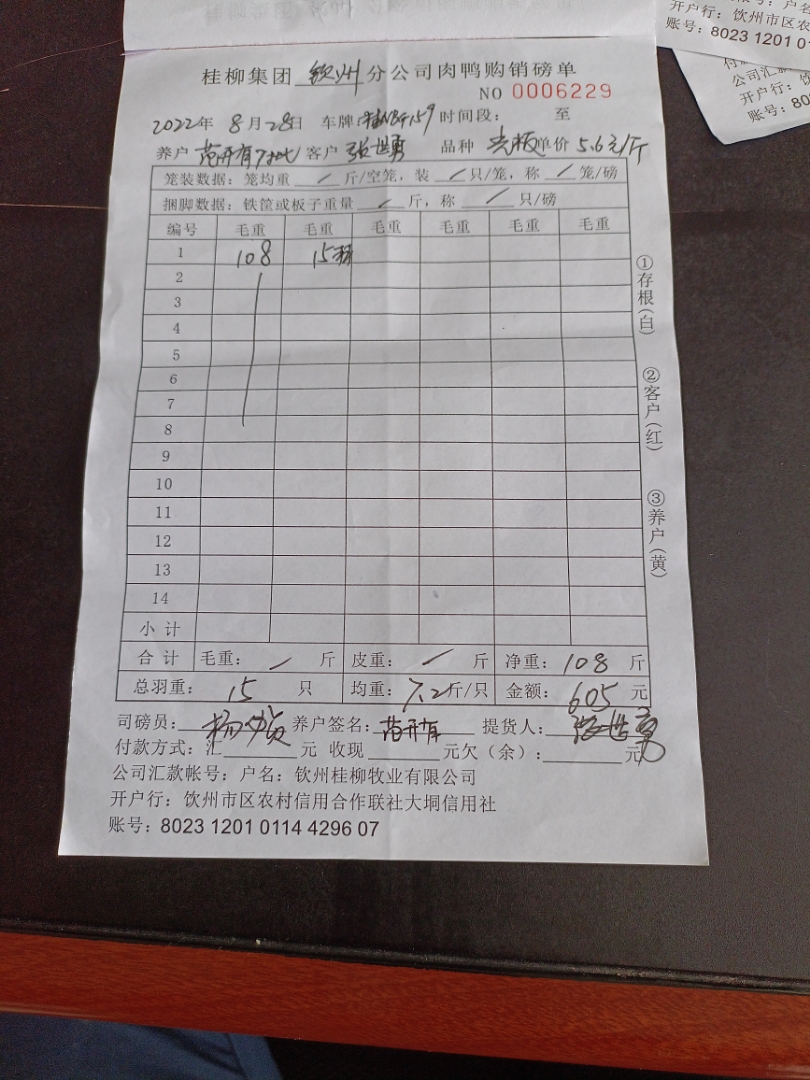 桂柳集团 钦州 分公司肉鸭购销磅单
NO 0006229
2022年 8月28日 车牌: 159 时间段: 至
养户 范开有 客户 张世勇 品种 光板 单价 5.6元/斤
笼装数据: 笼均重 / 斤/空笼, 装 / 只/笼, 称 / 笼/磅
捆脚数据: 铁筐或板子重量 / 斤, 称 / 只/磅
编号 毛重 毛重 毛重 毛重 毛重 毛重
1 108 15
2
3
4
5
6
7
8
9
10
11
12
13
14
小计
合计 毛重: / 斤 皮重: / 斤 净重: 108 斤
总羽重: 15 只 均重: 7.2斤/只 金额: 605 元
司磅员: 杨 养户签名: 范开有 提货人: 张世勇
付款方式: 汇 元 收现 元欠(余): 元
公司汇款帐号: 户名: 钦州桂柳牧业有限公司
开户行: 钦州市区农村信用合作联社大垌信用社
账号: 8023 1201 0114 4296 07
①存根(白)
②客户(红)
③养户(黄)
开户行: 钦州市区农
账号: 8023 1201 0
公司汇款
开户行:
账号: 80